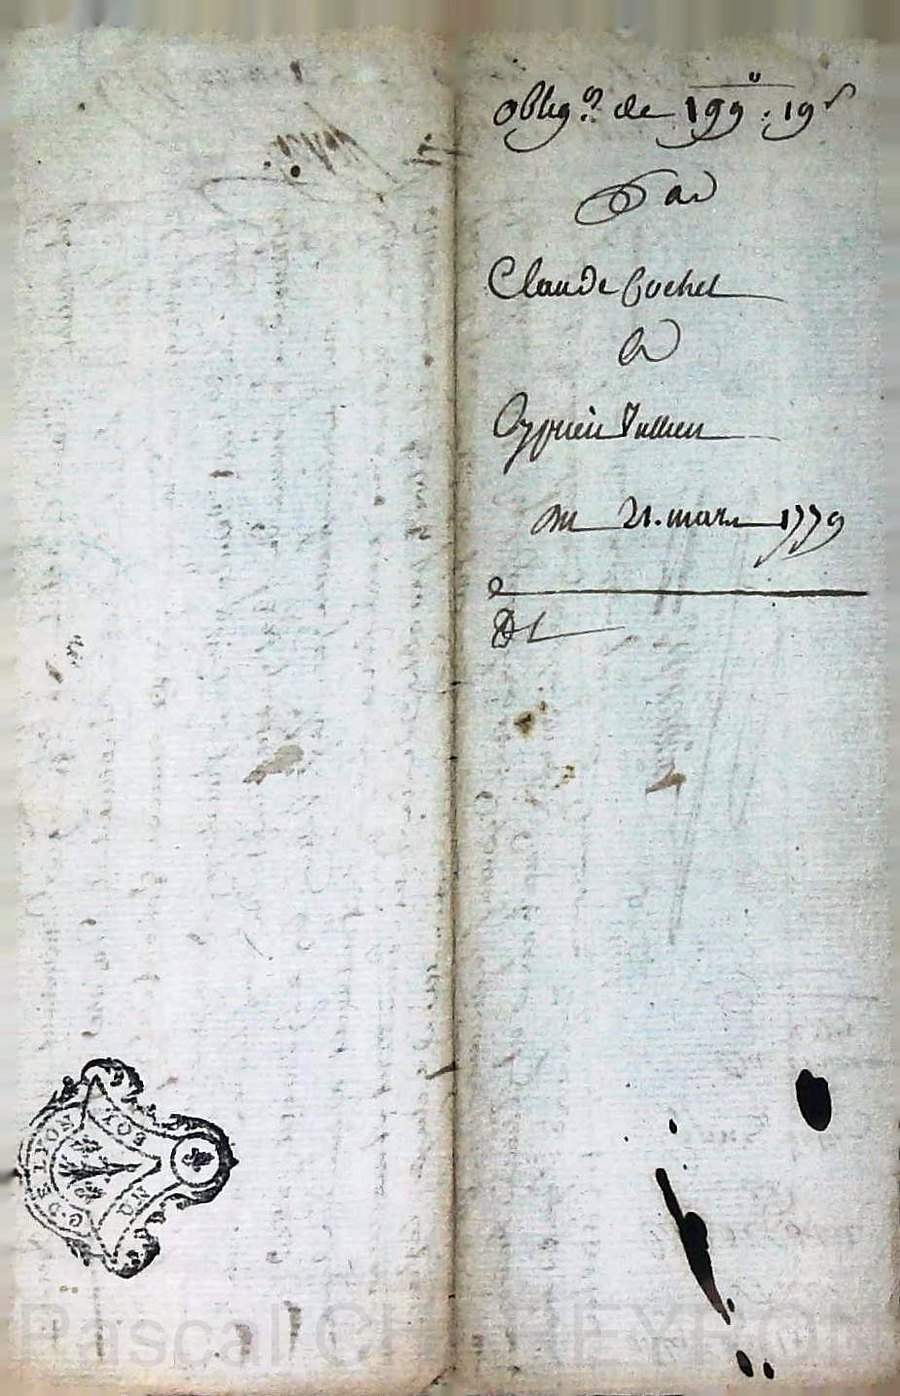 oblig.on de 199.ll 19s
Par
Claude Cochet
A
Cyprien Jullien
Du 21. mars 1779
G. DE LYON
SOL
UN
Pascal CHABREYRON